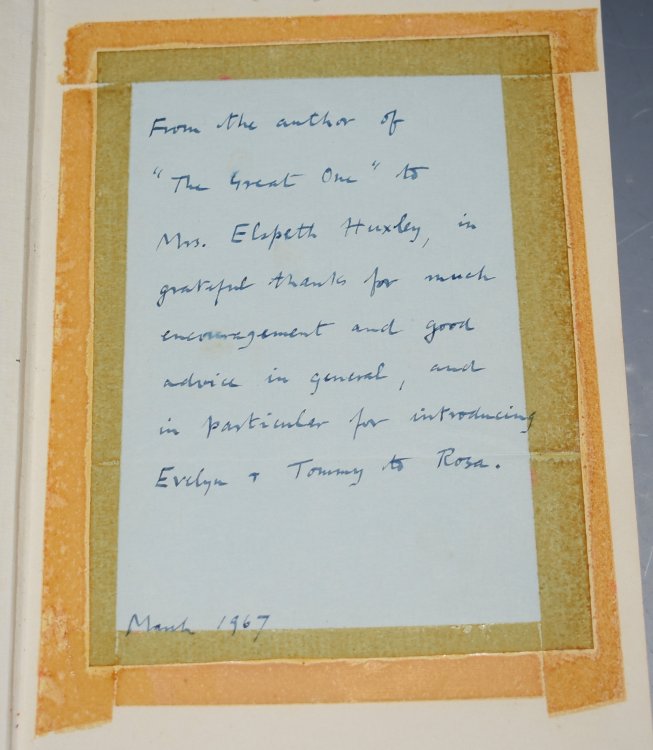 From the author of
"The Great One" to
Mrs. Elspeth Huxley, in
grateful thanks for much
encouragement and good
advice in general, and
in particular for introducing
Evelyn + Tommy to Rosa.
March 1967